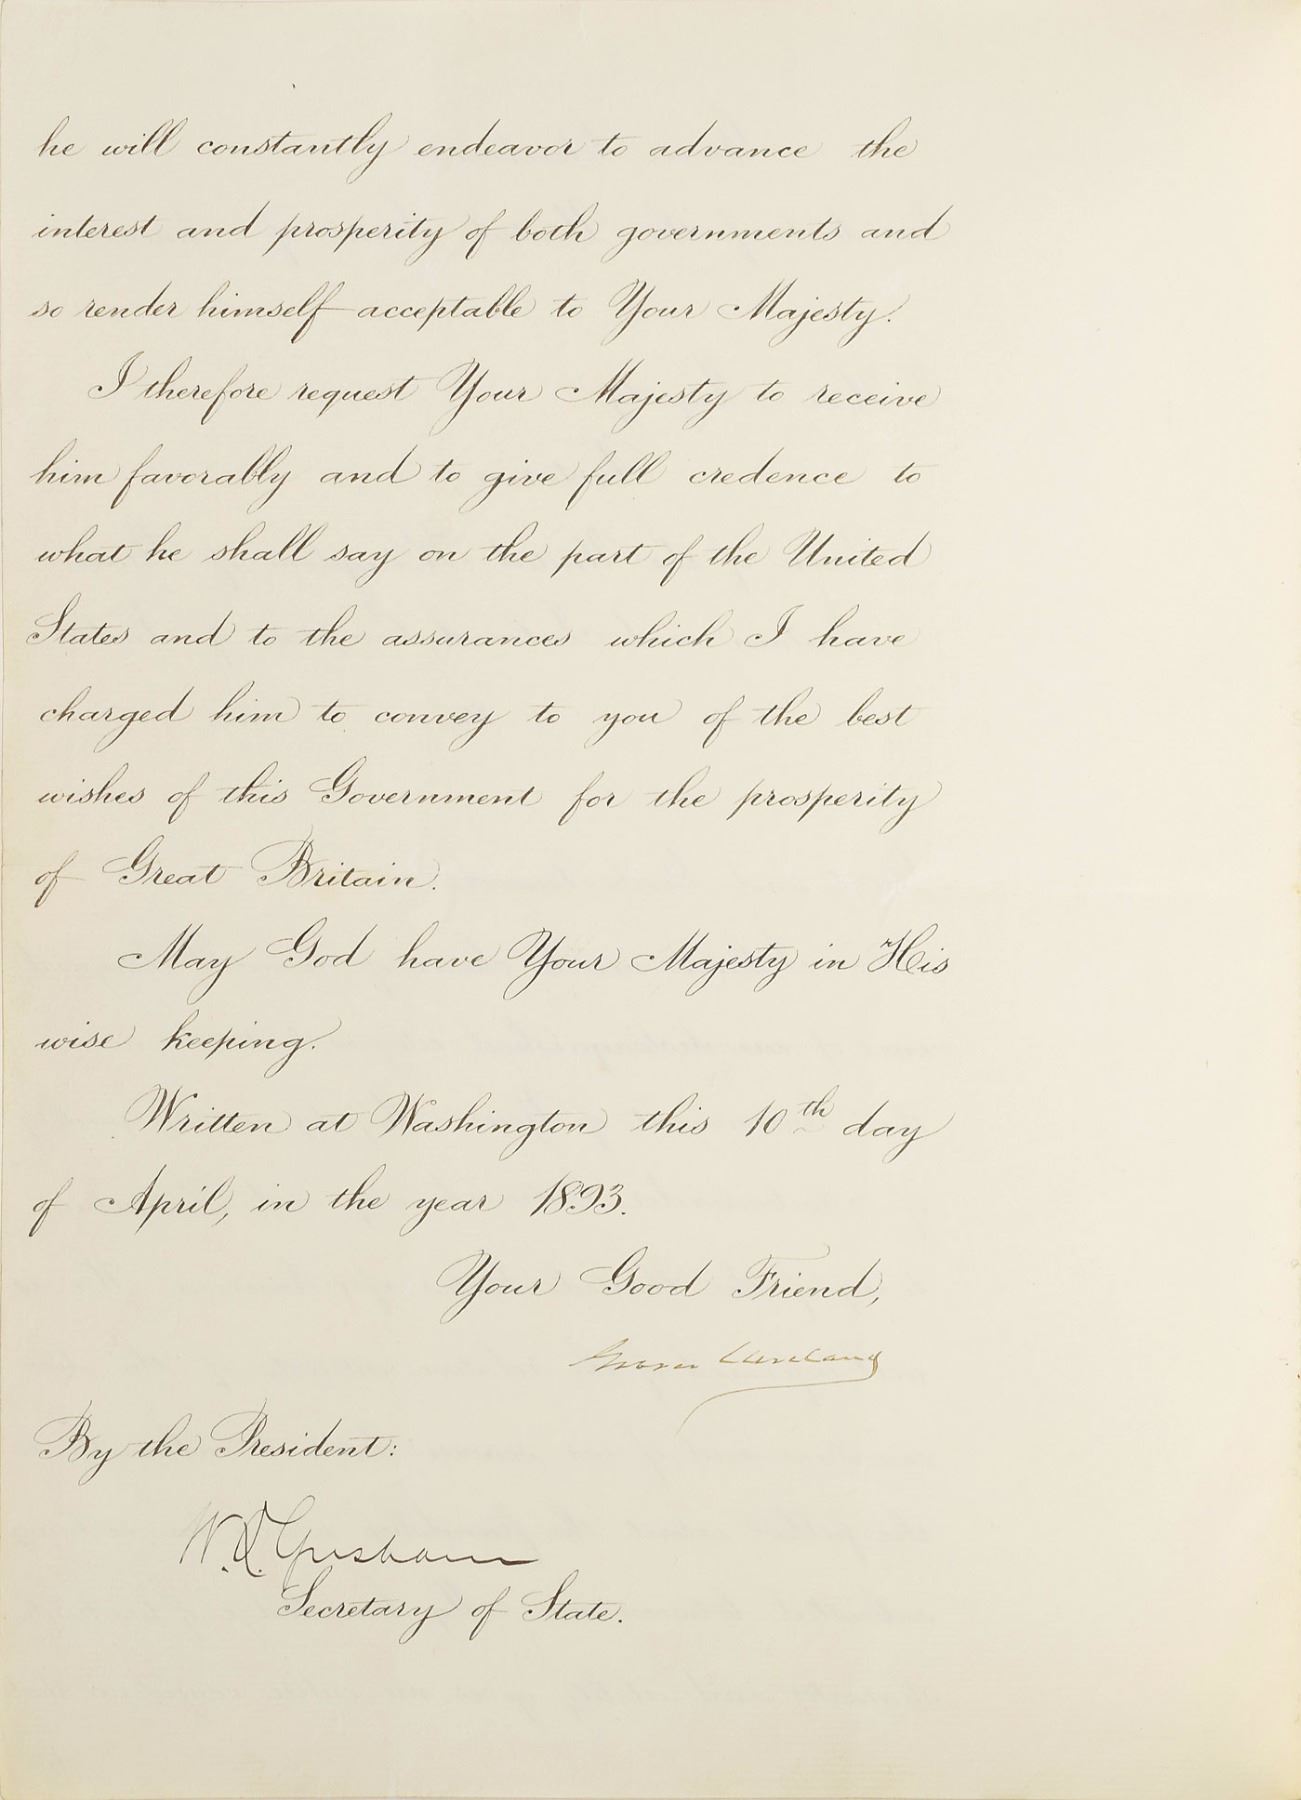 he will constantly endeavor to advance the
interest and prosperity of both governments and
so render himself acceptable to Your Majesty.
I therefore request Your Majesty to receive
him favorably and to give full credence to
what he shall say on the part of the United
States and to the assurances which I have
charged him to convey to you of the best
wishes of this Government for the prosperity
of Great Britain.
May God have Your Majesty in His
wise keeping.
Written at Washington this 10th day
of April, in the year 1893.
Your Good Friend,
Grover Cleveland
By the President:
W. Q. Gresham
Secretary of State.